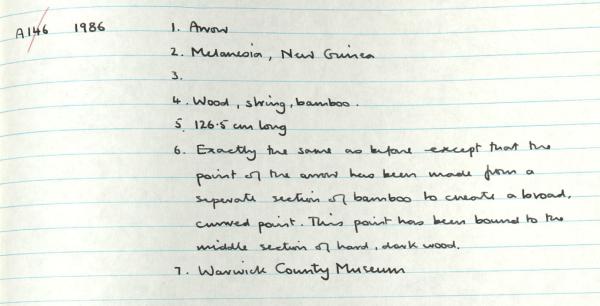 A146 1986 1. Arrow
2. Melanesia, New Guinea
3.
4. Wood, string, bamboo.
5. 126.5 cm long
6. Exactly the same as before except that the
point of the arrow has been made from a
seperate section of bamboo to create a broad,
curved point. This point has been bound to the
middle section of hard, dark wood.
7. Warwick County Museum